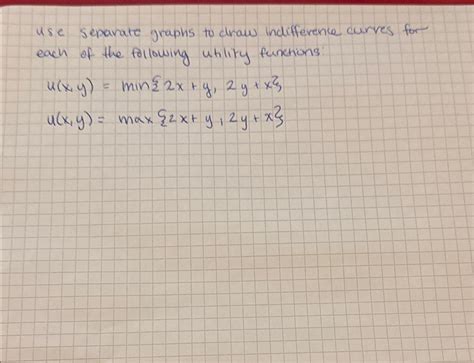 use separate graphs to draw indifference curves for
each of the following utility functions:
u(x,y) = min{2x+y, 2y+x}
u(x,y) = max{2x+y, 2y+x}